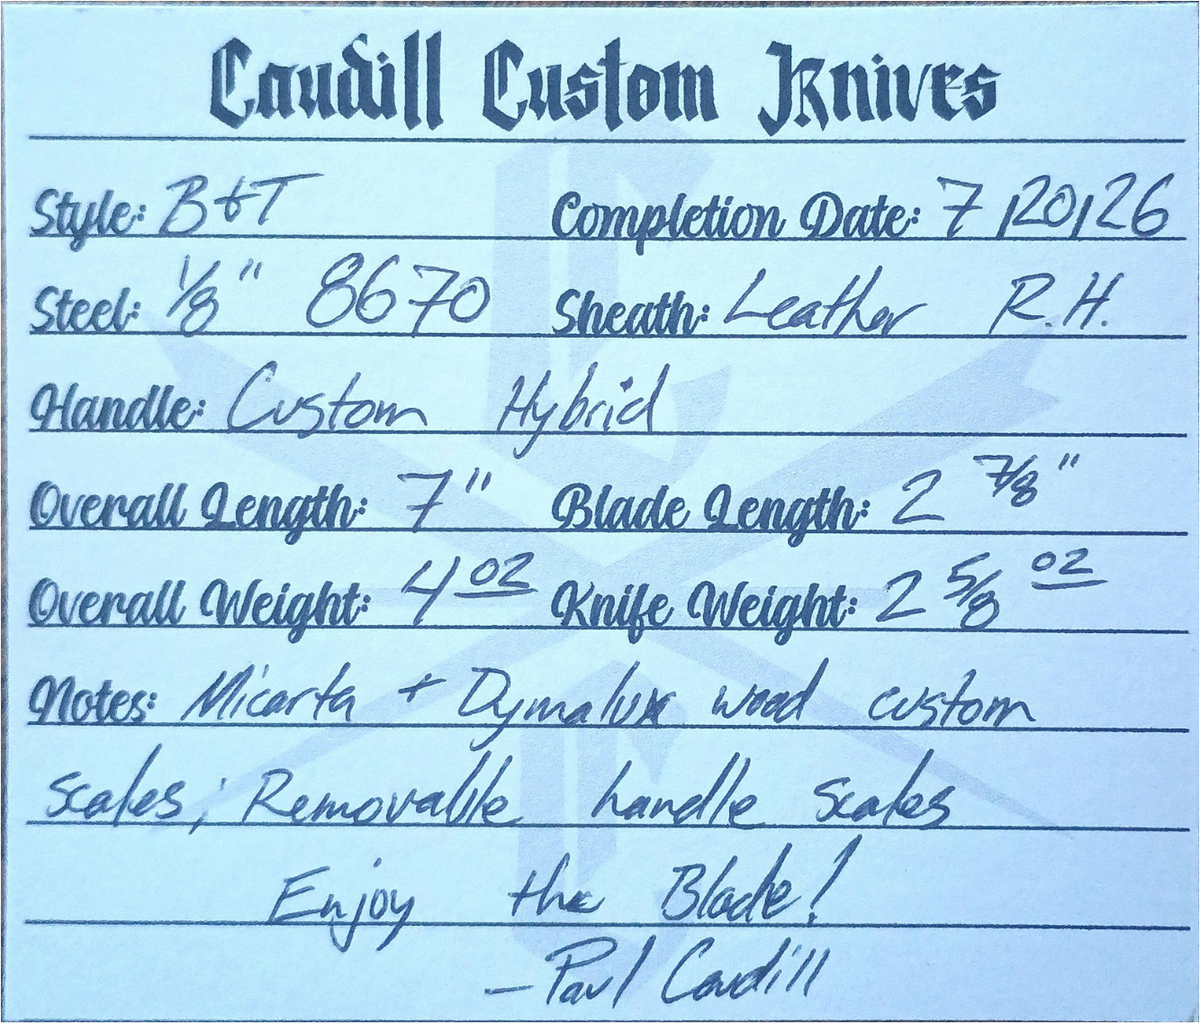 Caudill Custom Knives
Style: B&T Completion Date: 7/20/26
Steel: 1/8" 8670 Sheath: Leather R.H.
Handle: Custom Hybrid
Overall Length: 7" Blade Length: 2 7/8"
Overall Weight: 4 oz Knife Weight: 2 5/8 oz
Notes: Micarta + Dymalux wood custom
scales; Removable handle scales
Enjoy the Blade!
-Paul Caudill